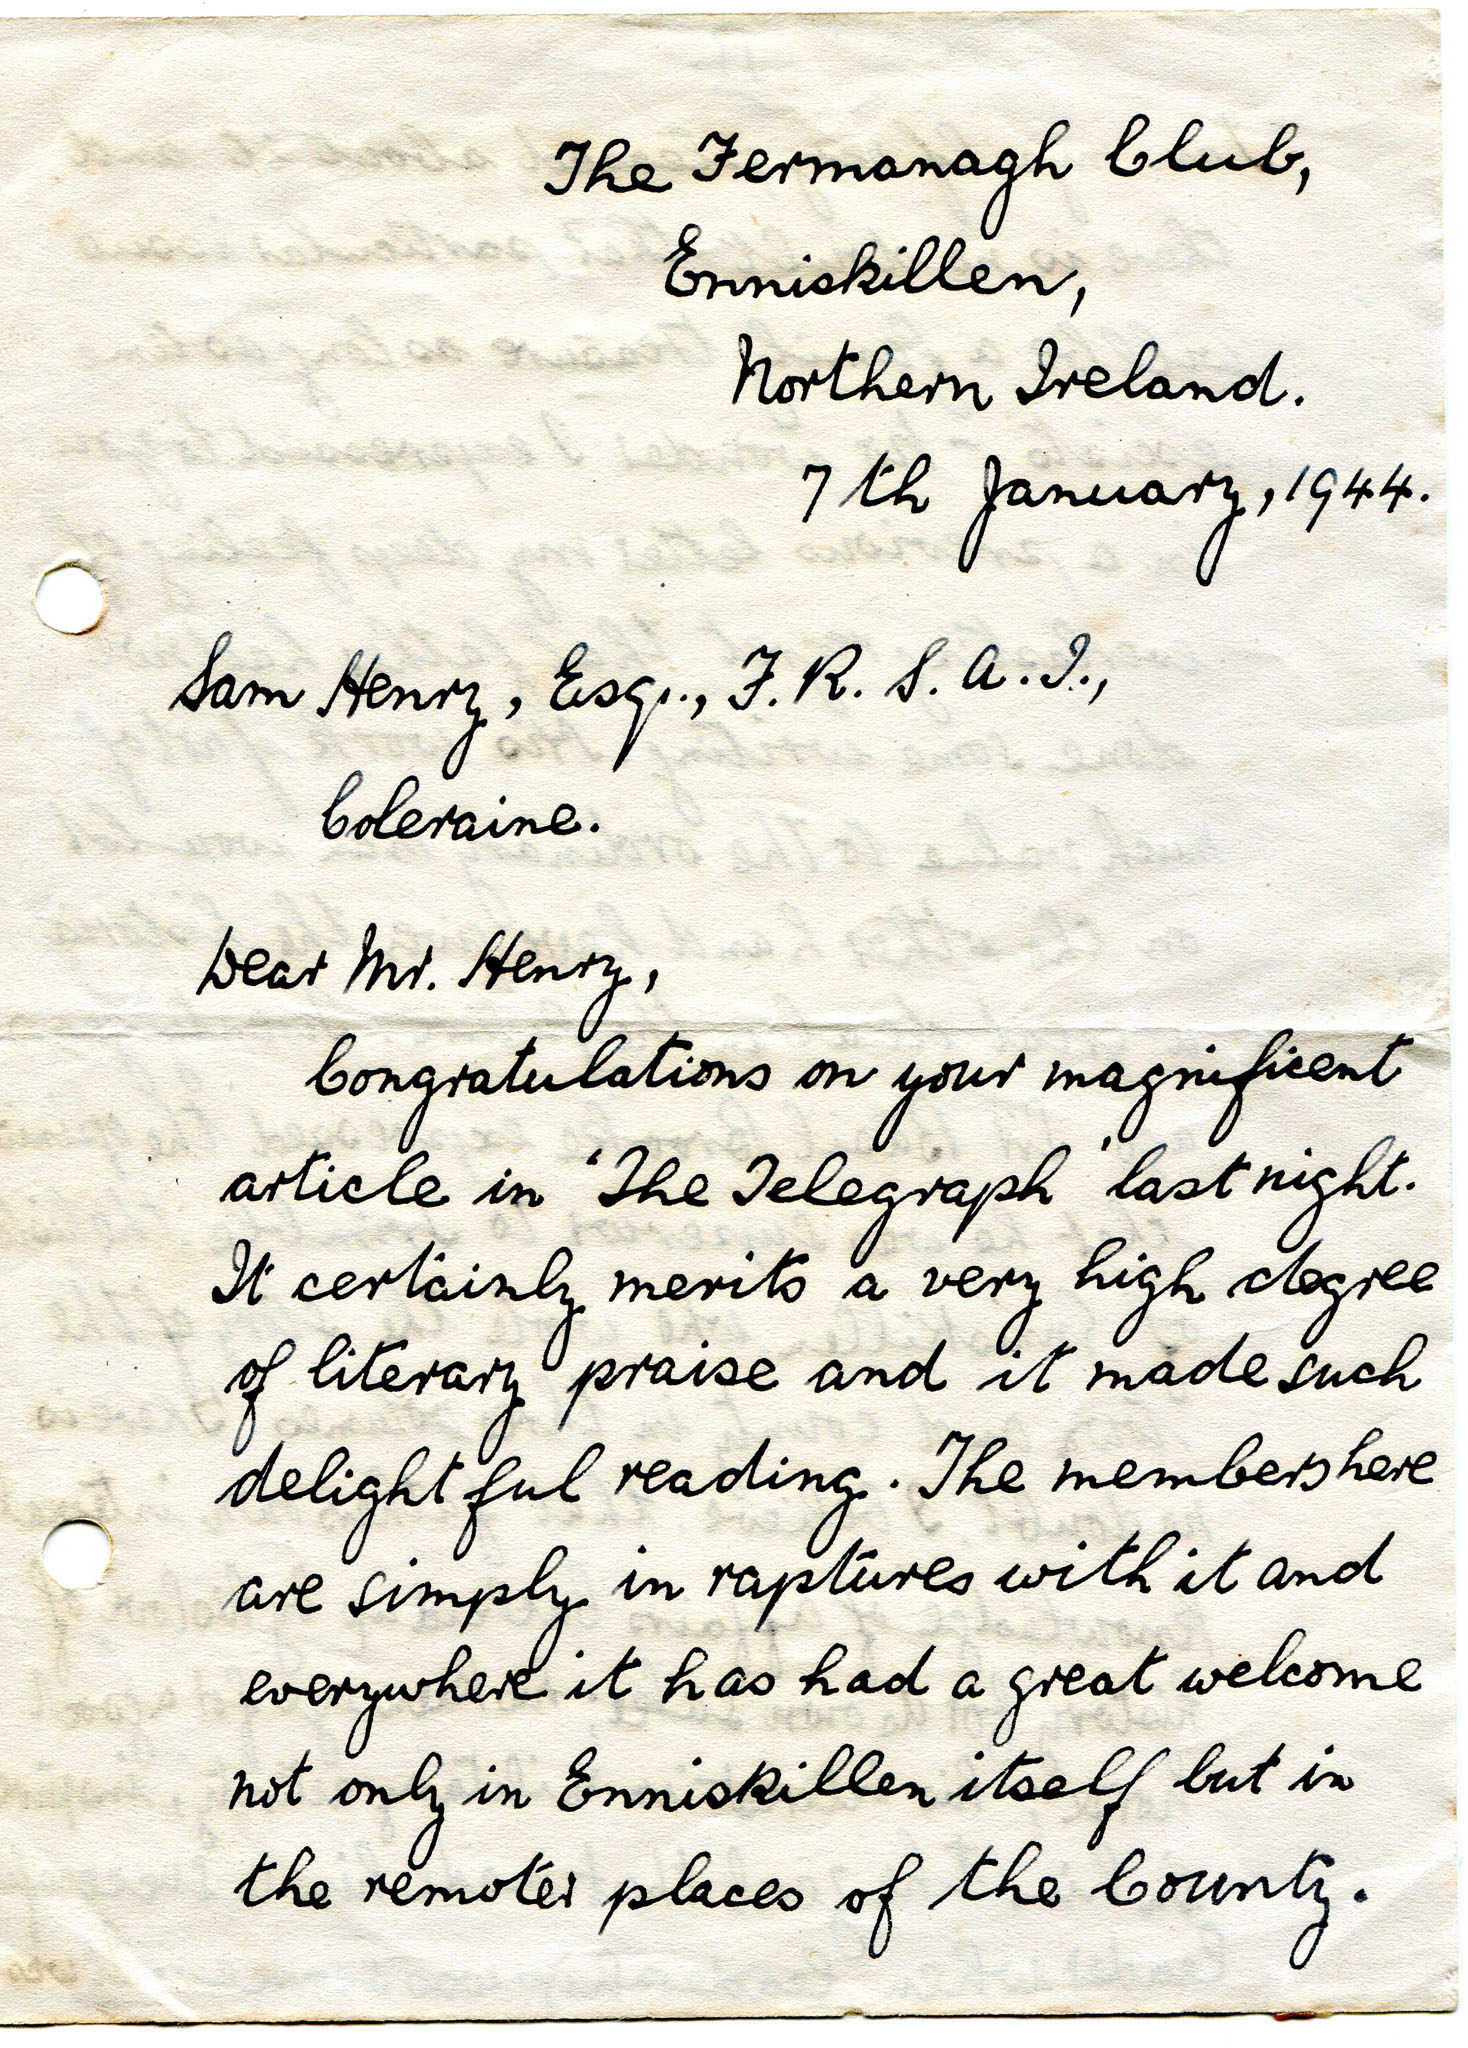 The Fermanagh Club,
Enniskillen,
Northern Ireland.
7th January, 1944.
Sam Henry, Esq., F. R. S. A. I.,
Coleraine.
Dear Mr. Henry,
Congratulations on your magnificent
article in 'The Telegraph' last night.
It certainly merits a very high degree
of literary praise and it made such
delightful reading. The members here
are simply in raptures with it and
everywhere it has had a great welcome
not only in Enniskillen itself but in
the remoter places of the County.